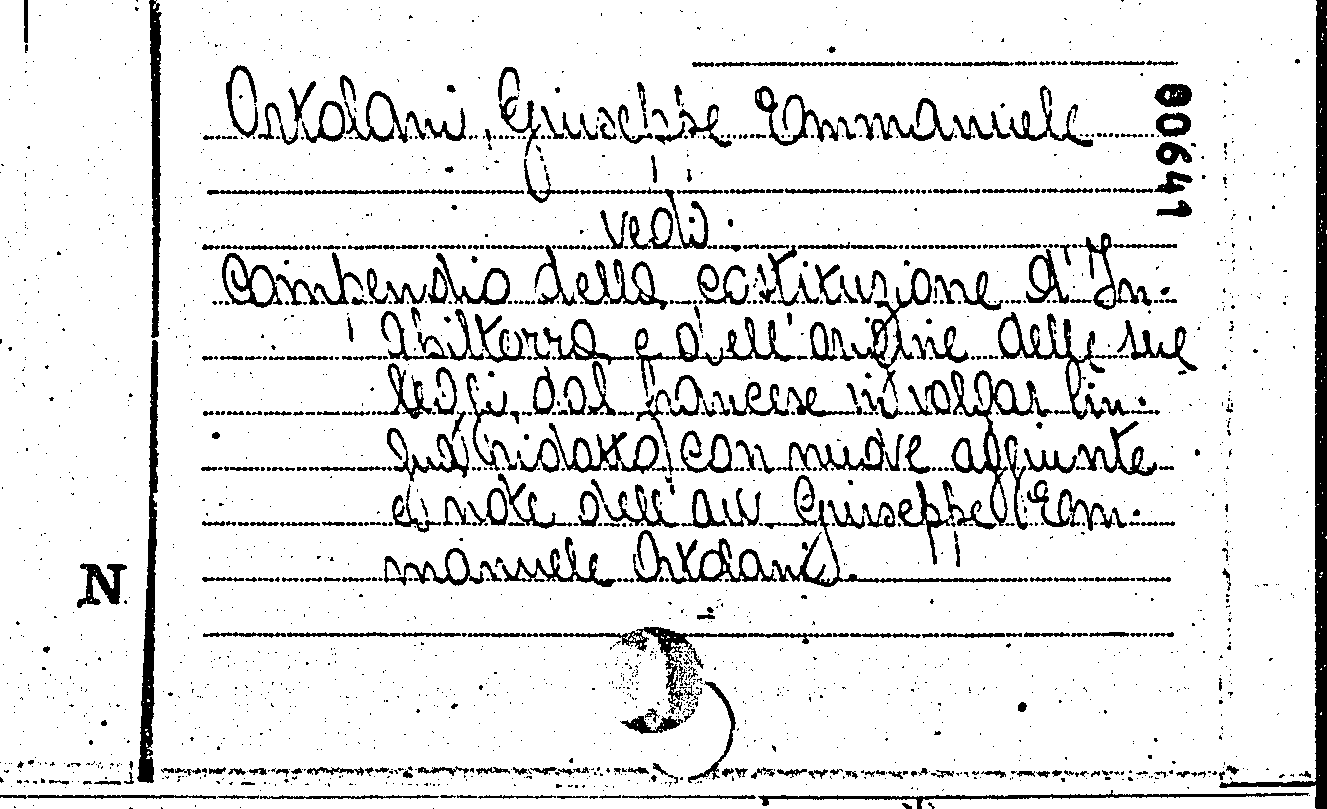 Ortolani, Giuseppe Emmanuele
80641
vedi.
Compendio della costituzione d'In-
ghilterra e dell'origine delle sue
leggi, dal francese in volgar lin-
gua ridotto con nuove aggiunte
e note dell'avv. Giuseppe Em-
manuele Ortolani.
N